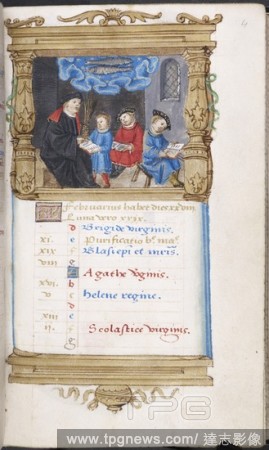 4
Februarius habet dies xxviii
Luna vero xxix.
d Brigide virginis.
xi. e Purificatio b. ma.
xix f Blasii epi et mris.
viii g
A Agathe vginis.
xvi. b
v c Helene regine.
d
xiii e
ii. f Scolastice virginis.
g
TPG
www.tpgnews.com/達志影像